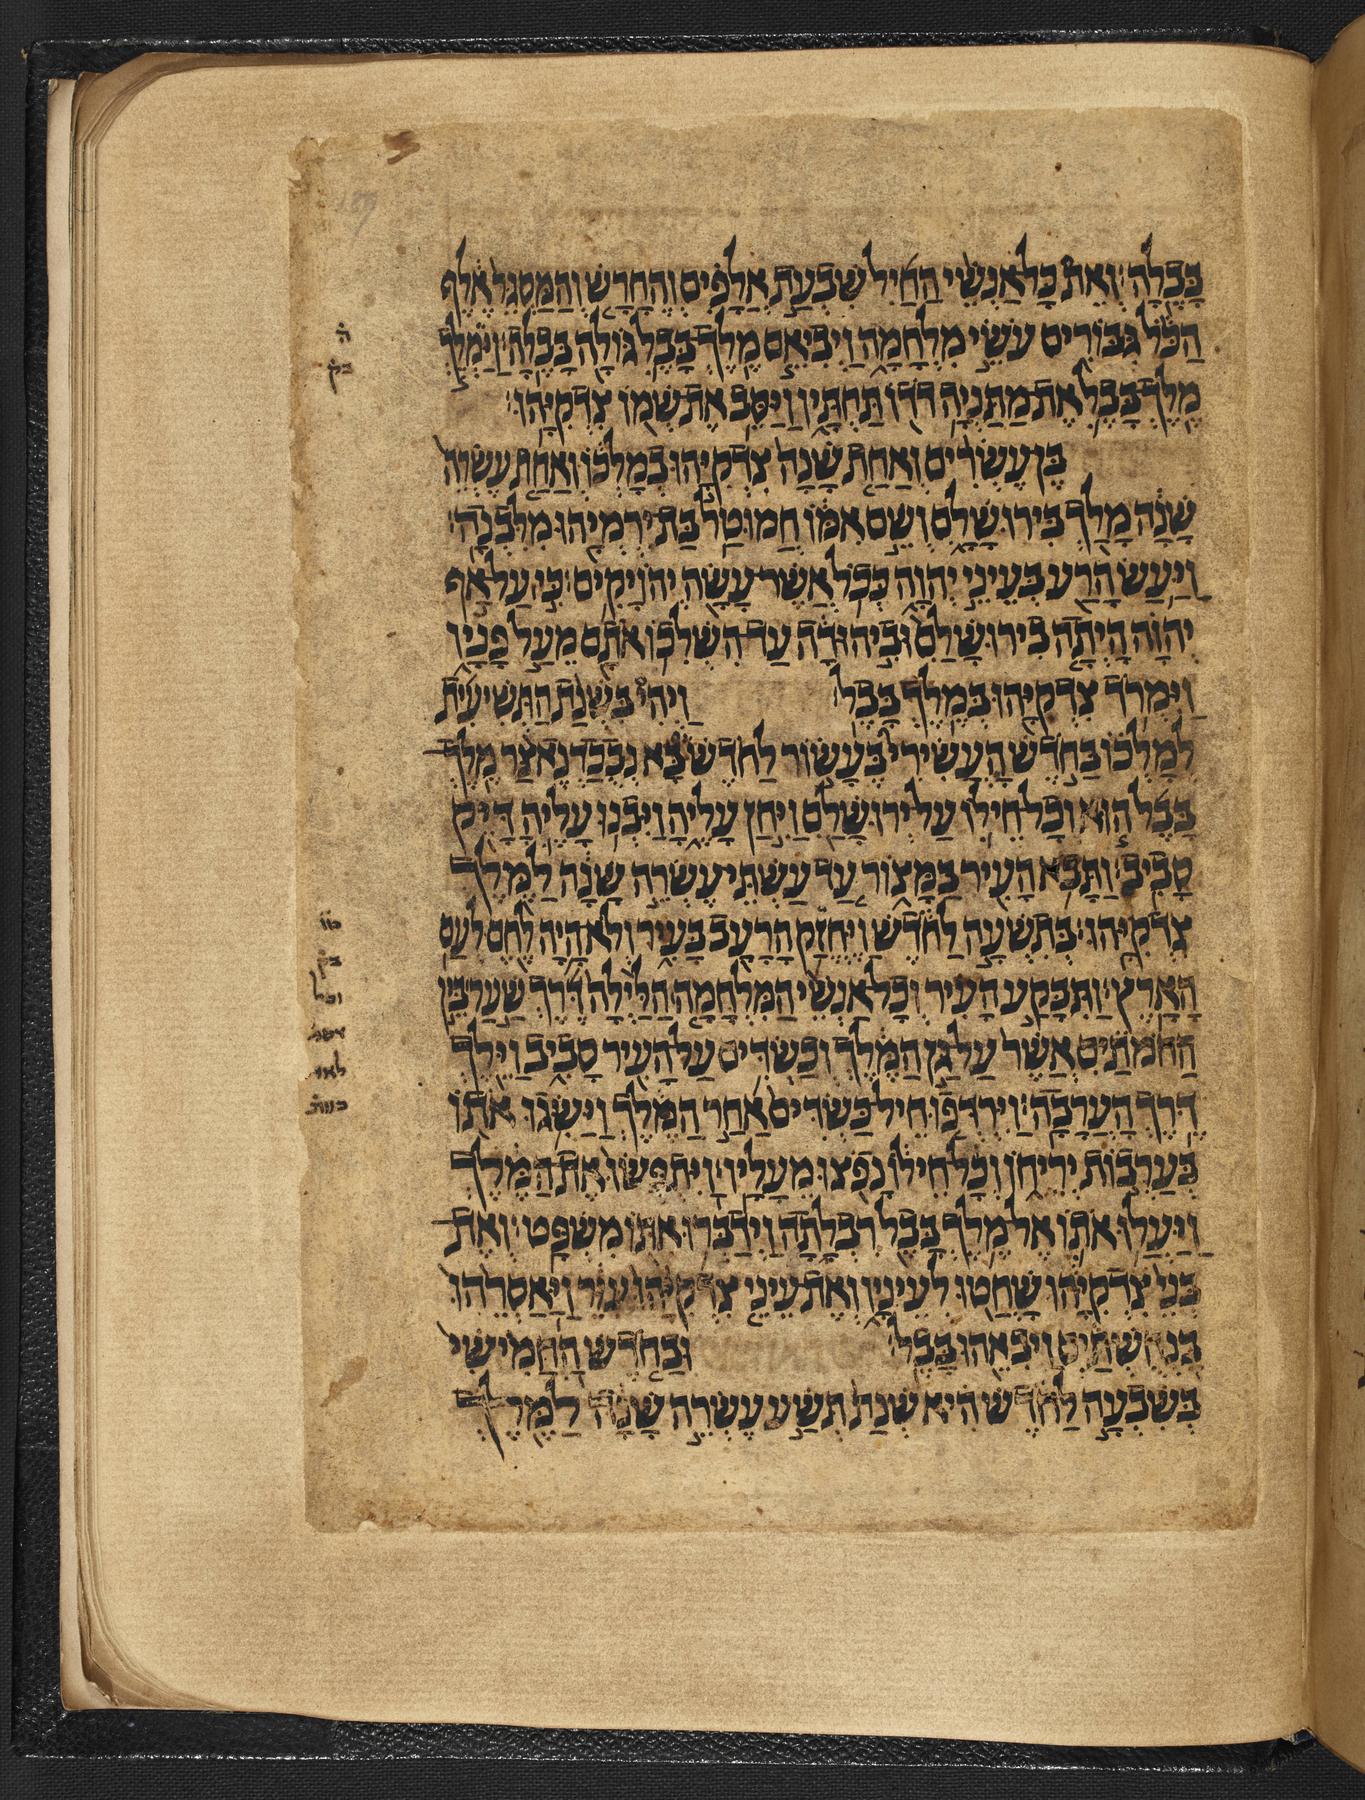 בָּבֶלָה׃ וְאֵת כָּל אַנְשֵׁי הַחַיִל שִׁבְעַת אֲלָפִים וְהֶחָרָשׁ וְהַמַּסְגֵּר אֶלֶף
הַכֹּל גִּבּוֹרִים עֹשֵׂי מִלְחָמָה וַיְבִיאֵם מֶלֶךְ בָּבֶל גּוֹלָה בָּבֶלָה׃ וַיַּמְלֵךְ
מֶלֶךְ בָּבֶל אֶת מַתַּנְיָה דֹדוֹ תַּחְתָּיו וַיַּסֵּב אֶת שְׁמוֹ צִדְקִיָּהוּ׃
בֶּן עֶשְׂרִים וְאַחַת שָׁנָה צִדְקִיָּהוּ בְמָלְכוֹ וְאַחַת עֶשְׂרֵה
שָׁנָה מָלַךְ בִּירוּשָׁלִָם וְשֵׁם אִמּוֹ חֲמוּטַל בַּת יִרְמְיָהוּ מִלִּבְנָה׃
וַיַּעַשׂ הָרַע בְּעֵינֵי יְהוָה כְּכֹל אֲשֶׁר עָשָׂה יְהוֹיָקִים׃ כִּי עַל אַף
יְהוָה הָיְתָה בִירוּשָׁלִַם וּבִיהוּדָה עַד הִשְׁלִכוֹ אֹתָם מֵעַל פָּנָיו
וַיִּמְרֹד צִדְקִיָּהוּ בְּמֶלֶךְ בָּבֶל׃ וַיְהִי בִשְׁנַת הַתְּשִׁיעִית
לְמָלְכוֹ בַּחֹדֶשׁ הָעֲשִׂירִי בֶּעָשׂוֹר לַחֹדֶשׁ בָּא נְבֻכַדְנֶאצַּר מֶלֶךְ
בָּבֶל הוּא וְכָל חֵילוֹ עַל יְרוּשָׁלִַם וַיִּחַן עָלֶיהָ וַיִּבְנוּ עָלֶיהָ דָּיֵק
סָבִיב׃ וַתָּבֹא הָעִיר בַּמָּצוֹר עַד עַשְׁתֵּי עֶשְׂרֵה שָׁנָה לַמֶּלֶךְ
צִדְקִיָּהוּ׃ בְּתִשְׁעָה לַחֹדֶשׁ וַיֶּחֱזַק הָרָעָב בָּעִיר וְלֹא הָיָה לֶחֶם לְעַם
הָאָרֶץ׃ וַתִּבָּקַע הָעִיר וְכָל אַנְשֵׁי הַמִּלְחָמָה הַלַּיְלָה דֶּרֶךְ שַׁעַר בֵּין
הַחֹמֹתַיִם אֲשֶׁר עַל גַּן הַמֶּלֶךְ וְכַשְׂדִּים עַל הָעִיר סָבִיב וַיֵּלֶךְ
דֶּרֶךְ הָעֲרָבָה׃ וַיִּרְדְּפוּ חֵיל כַּשְׂדִּים אַחַר הַמֶּלֶךְ וַיַּשִּׂגוּ אֹתוֹ
בְּעַרְבוֹת יְרִיחוֹ וְכָל חֵילוֹ נָפֹצוּ מֵעָלָיו׃ וַיִּתְפְּשׂוּ אֶת הַמֶּלֶךְ
וַיַּעֲלוּ אֹתוֹ אֶל מֶלֶךְ בָּבֶל רִבְלָתָה וַיְדַבְּרוּ אִתּוֹ מִשְׁפָּט׃ וְאֶת
בְּנֵי צִדְקִיָּהוּ שָׁחֲטוּ לְעֵינָיו וְאֶת עֵינֵי צִדְקִיָּהוּ עִוֵּר וַיַּאַסְרֵהוּ
בַנְחֻשְׁתַּיִם וַיְבִאֵהוּ בָּבֶל׃ וּבַחֹדֶשׁ הַחֲמִישִׁי
בְּשִׁבְעָה לַחֹדֶשׁ הִיא שְׁנַת תְּשַׁע עֶשְׂרֵה שָׁנָה לַמֶּלֶךְ